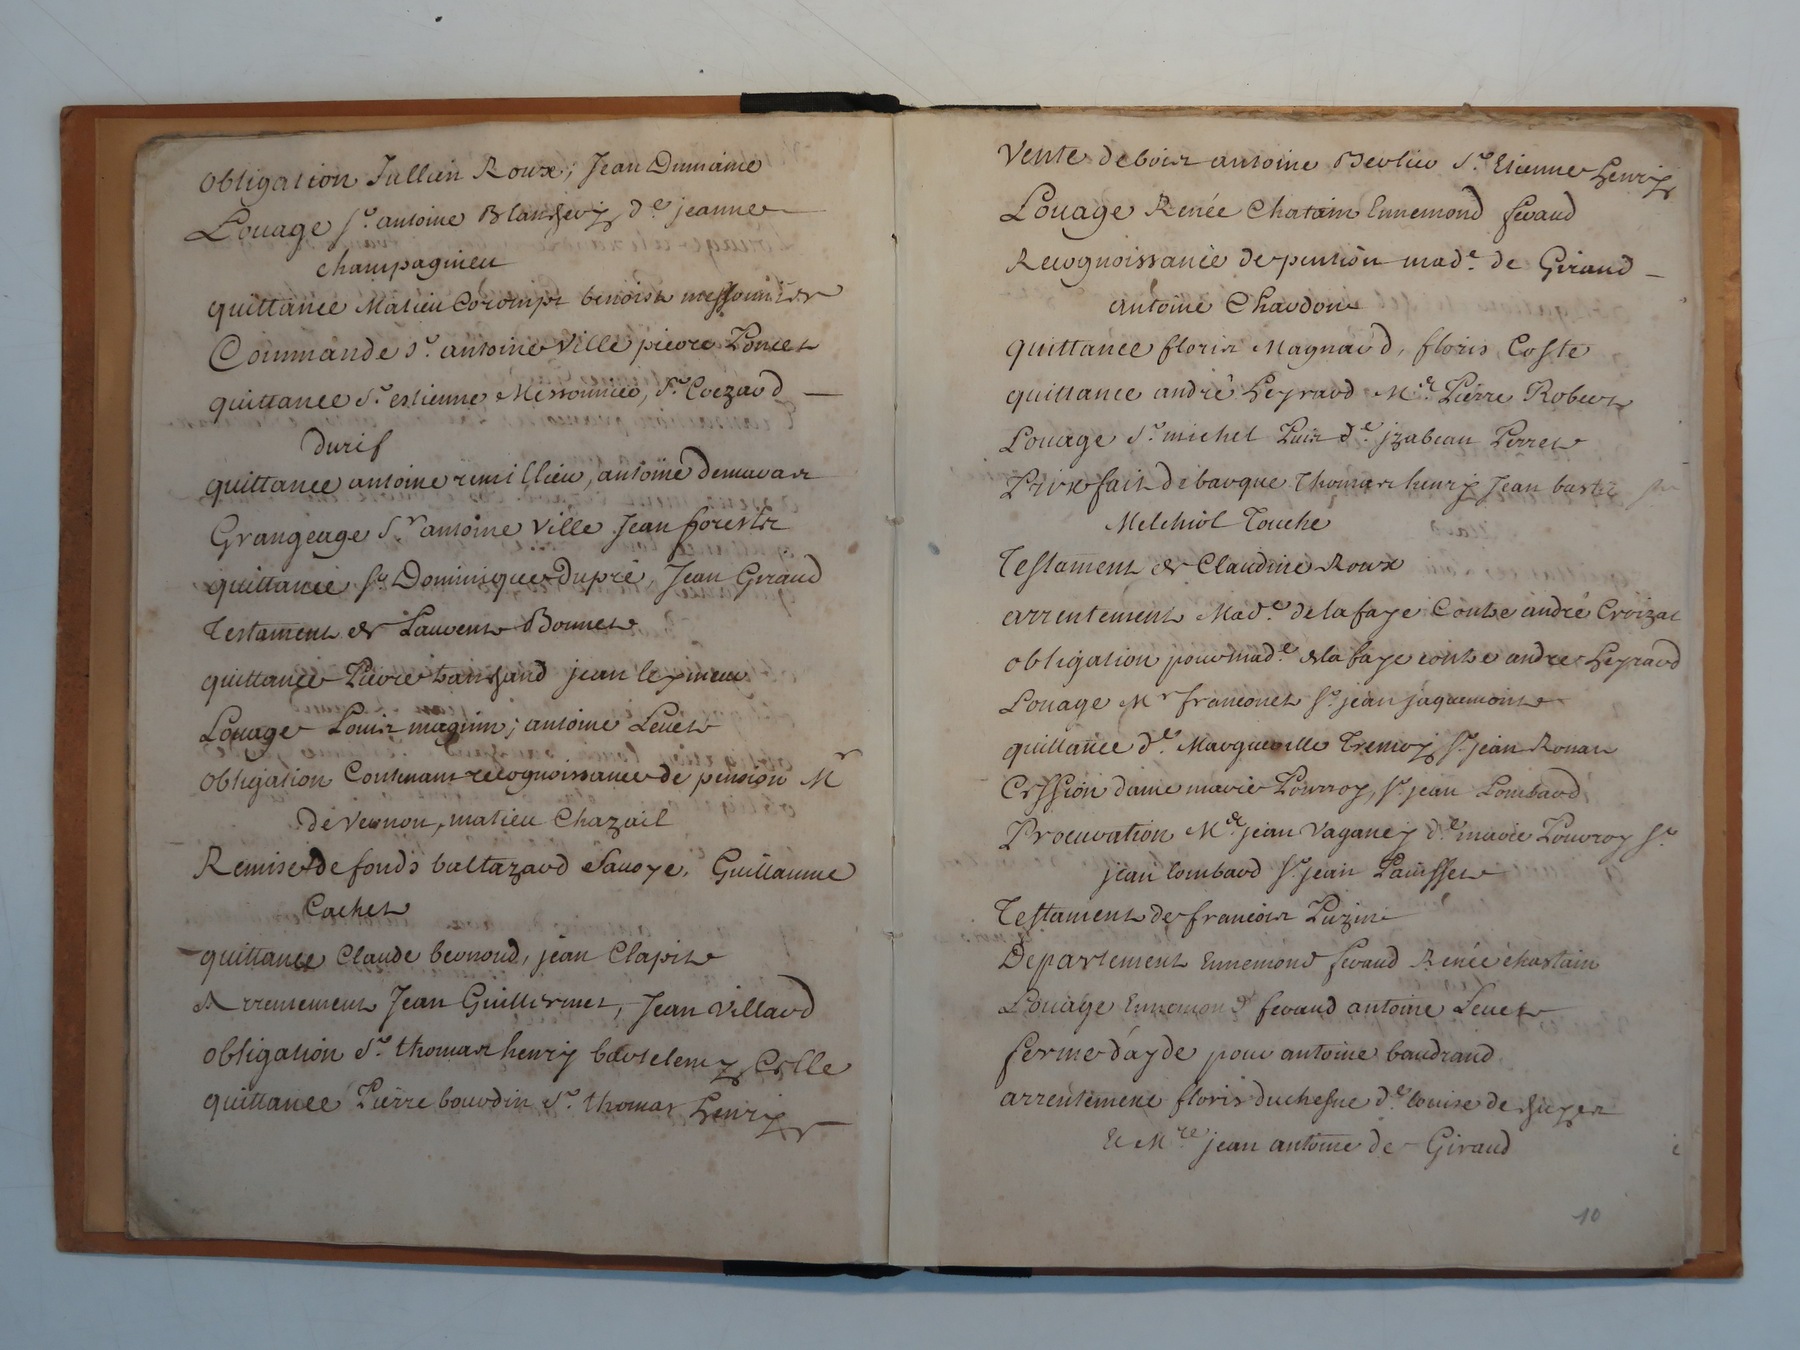 obligation Jullien Roux; Jean Dumaine
Louage Sr. antoine Blancherj, de. jeanne
champagnieu
quittance Matieu Corompt benoist messonnier
Commande Sr. antoine Ville pierre Poncet
quittance Sr. estienne Messonnier, Sr. Crozard —
durif
quittance antoine rimillieu, antoine demaras
Grangeage Sr antoine Ville Jean forestier
quittance Sr Dominique Dupré, Jean Giraud
Testament de Laurent Bonnet
quittance Pierre jean
Louage Louis magnin; antoine Levet
obligation Contenant recognoissance de pension Mr
de Vernon, matieu Chazail
Remise de fonds baltazard Savoye, Guillaume
Cachet
quittance Claude bernond, jean Clapit
Arrentement Jean Guillermet, Jean Villard
obligation Sr. thomas henrj bartelemj Celle
quittance Pierre bourdin Sr. thomas henrj
Vente de bois antoine Berlieu Sr. Etienne henrj
Louage Renée Chatain Ennemond feraud
Recognoissance de pention made. de Giraud —
antoine Chardon
quittance floris Magnard, floris Coste
quittance andré Leyraud Me. Pierre Robert
Louage Sr. michel Puis de. jzabeau Perret
Prix fait de barque Thomas henrj Jean bastie
Melchiol Touche
Testament de Claudine Roux
arrentement Made. de la faye Contre andré Croizat
obligation pour made. de la faye contre andre Leyraud
Louage Mr franconet Sr. jean jaquemont
quittance de. Marguerite Tremoj, Sr. jean Rouan
Cession dame marie Pourroy, Sr. jean Lombard
Procuration Me. jean Vaganej de. marie Pourroy Sr.
jean lombard Sr. jean Pausset
Testament de francois Puzin
Departement Ennemond feraud Renée chastain
Louage Ennemond feraud antoine Levet
ferme d'ayde pour antoine baudrand
arrentement floris duchesne de. louise de
Et Mre jean antoine de Giraud
10